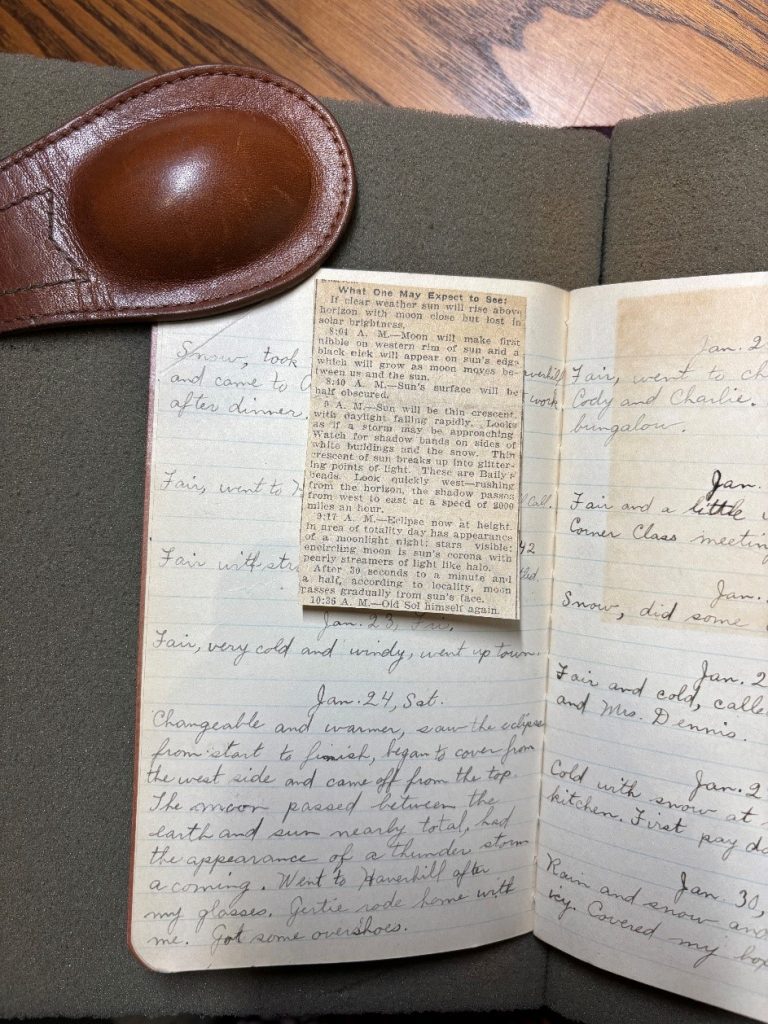 Snow, took
and came to
after dinner,
work
Fair, went to
call.
Fair with
42
What One May Expect to See:
If clear weather sun will rise above
horizon with moon close but lost in
solar brightness.
8:04 A. M.—Moon will make first
nibble on western rim of sun and a
black nick will appear on sun's edge
which will grow as moon moves be-
tween us and the sun.
8:40 A. M.—Sun's surface will be
half obscured.
9 A. M.—Sun will be thin crescent,
with daylight falling rapidly. Looks
as if a storm may be approaching.
Watch for shadow bands on sides of
white buildings and the snow. Thin
crescent of sun breaks up into glitter-
ing points of light. These are Baily's
beads. Look quickly west—rushing
from the horizon, the shadow passes
from west to east at a speed of 2000
miles an hour.
9:17 A. M.—Eclipse now at height.
In area of totality day has appearance
of a moonlight night; stars visible;
encircling moon is sun's corona with
pearly streamers of light like halo.
After 30 seconds to a minute and
a half, according to locality, moon
passes gradually from sun's face.
10:36 A. M.—Old Sol himself again.
Jan. 23, Fri.
Fair, very cold and windy, went up town.
Jan. 24, Sat.
Changeable and warmer, saw the eclipse
from start to finish, began to cover from
the west side and came off from the top.
The moon passed between the
earth and sun nearly total, had
the appearance of a thunder storm
a coming. Went to Haverhill after
my glasses. Gertie rode home with
me. Got some overshoes.
Jan. 2
Fair, went to ch
Cody and Charlie.
bungalow.
Jan.
Fair and a little
Corner Class meeting
Jan.
Snow, did some
Jan. 2
Fair and cold, calle
and Mrs. Dennis.
Jan. 2
Cold with snow at
kitchen. First pay da
Jan. 30,
Rain and snow and
icy. Covered my